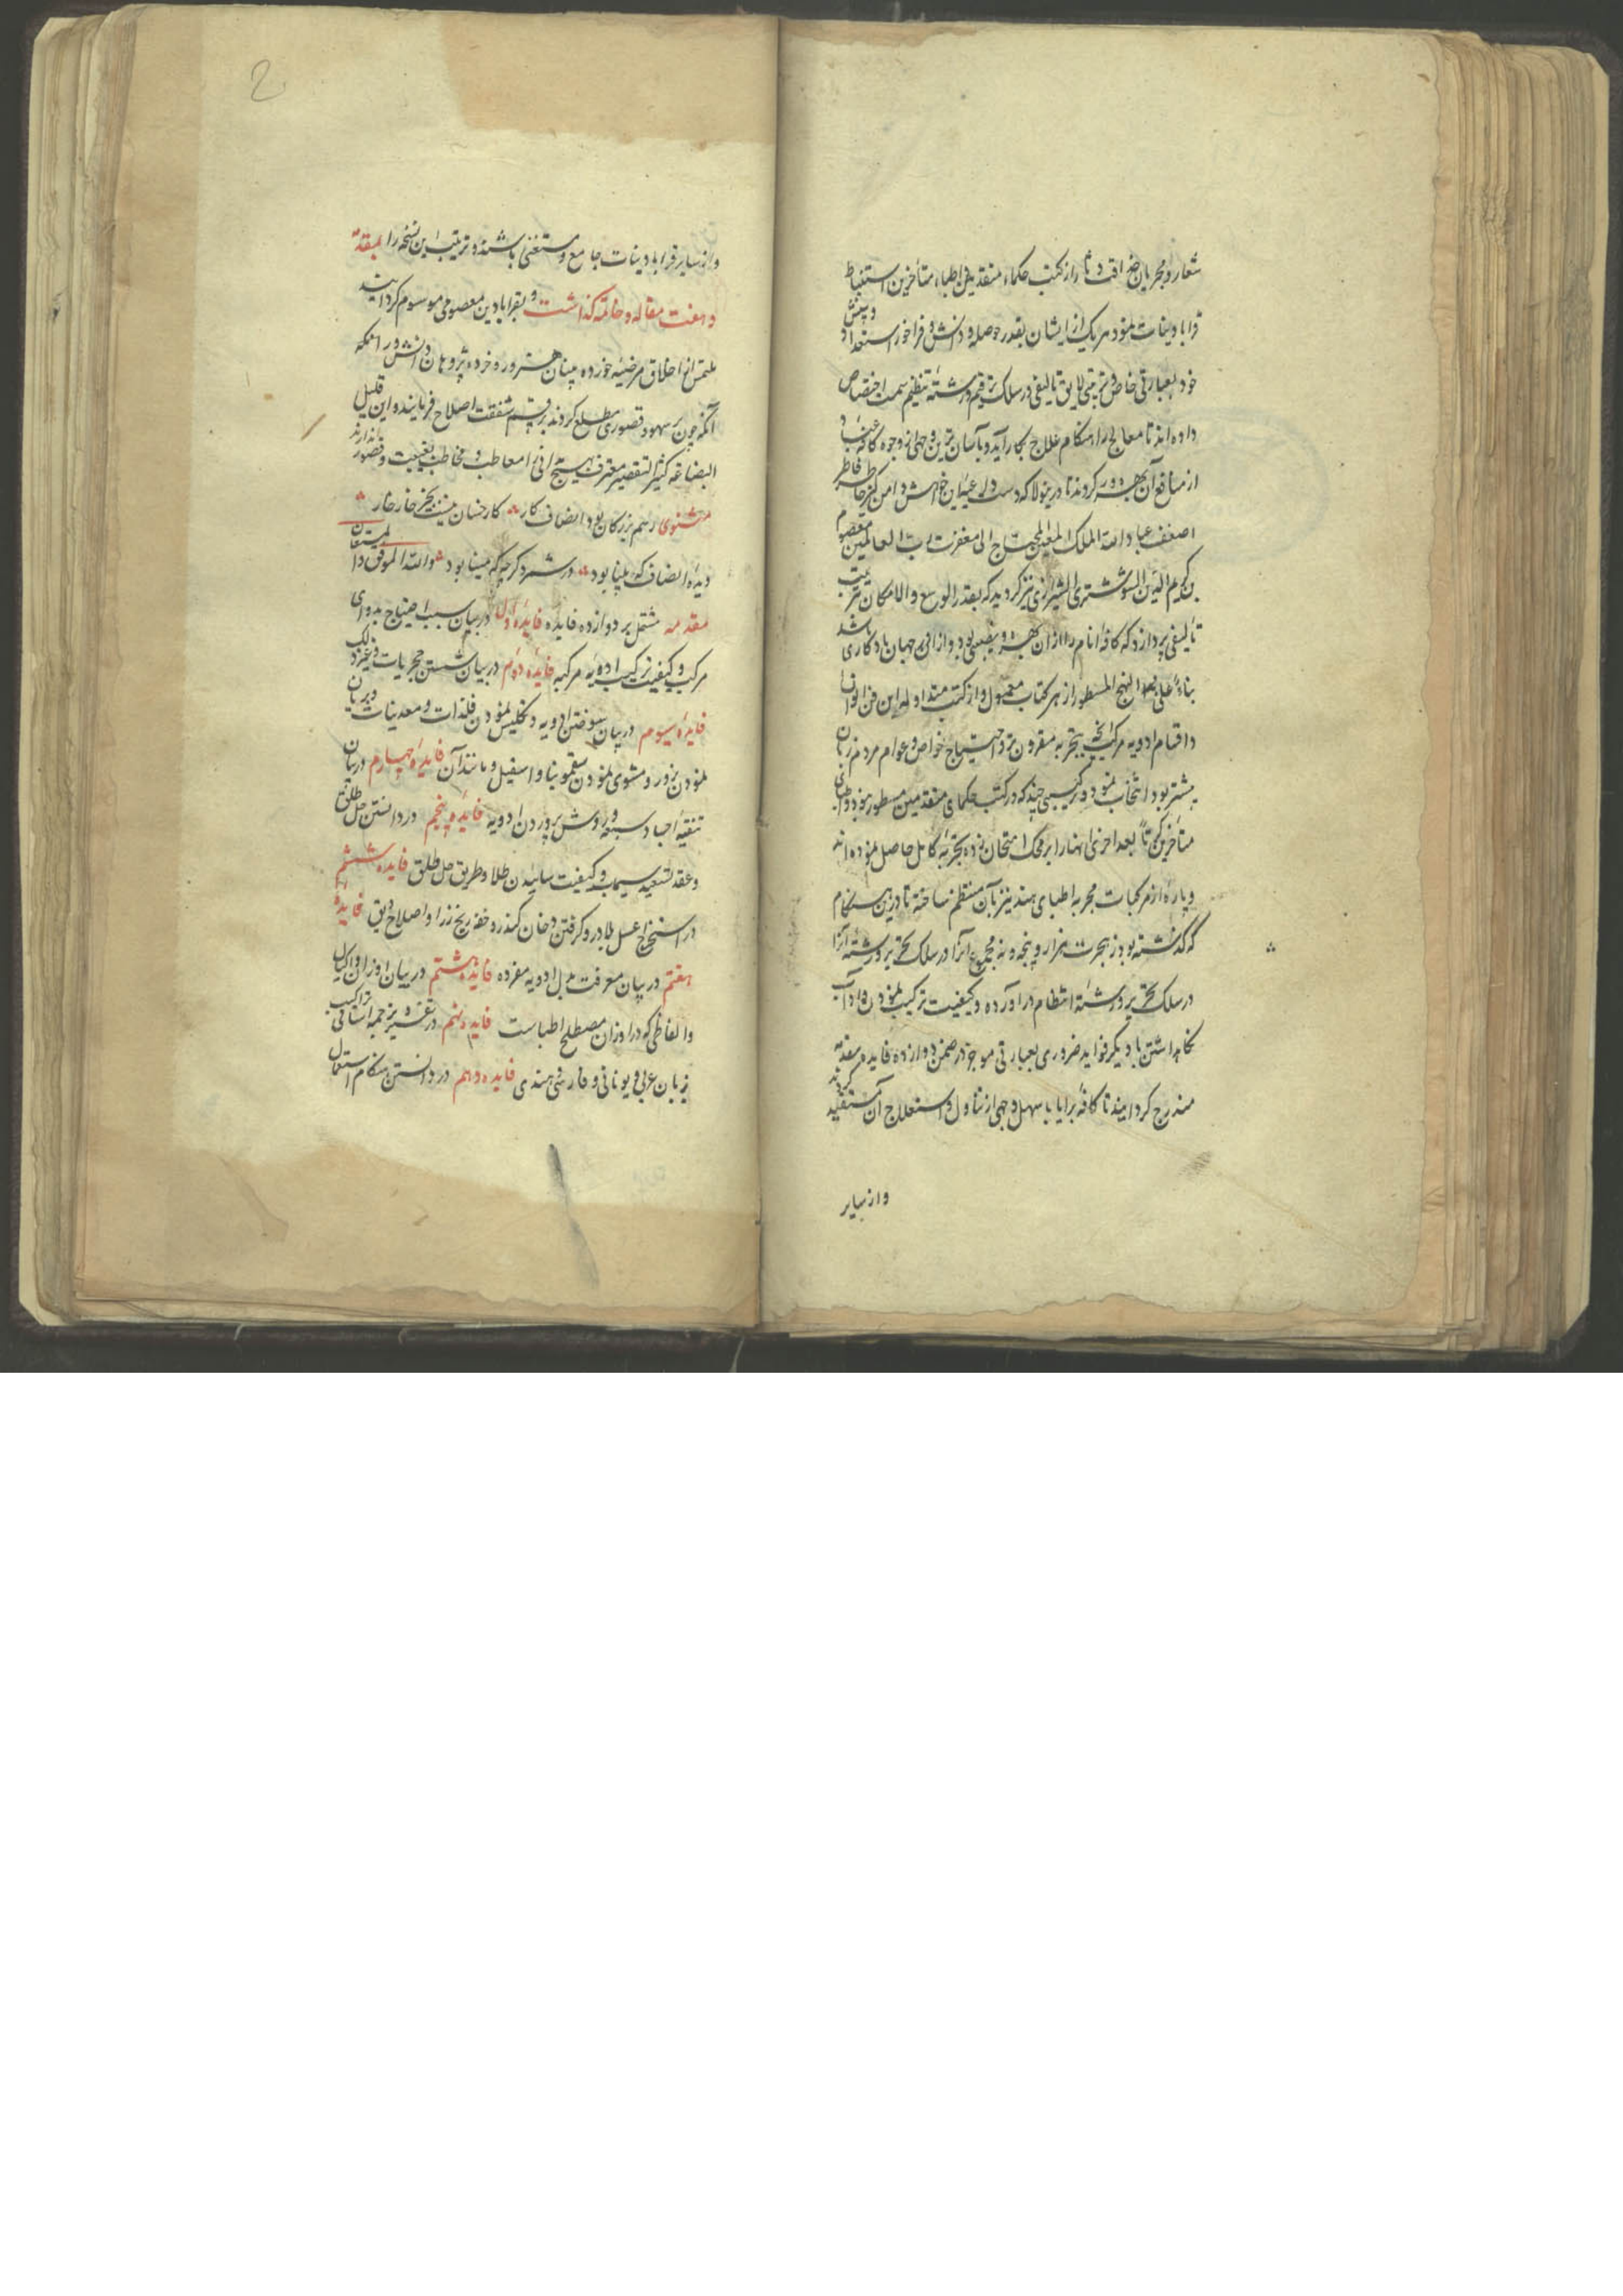 شعار و مجربان حذاقت دثار از کتب حکماء متقدمین و اطباء متأخرین استنباط
قرابادینات نموده هر یک از ایشان بقدر حوصله و دانش و فراخور استعداد و بینش
خود بعبارتی خاص و ترتیبی لایق تألیفی در سلک ترقیم و رشته تنظیم سمت اختصاص
داده اند تا معالج را هنکام علاج بکار آید و بآسان ترین وجهی از وجوه کافه عباد
از منافع آن بهره ور کردند تا درینولا که دست دل عنان خواهش و دامن کیر خاطر فاطر
اضعف عباد الله الملک المعین المحتاج الی مغفرت رب العالمین معصوم
بن کریم الدین الشوشتری الشیرازی نیز کردید که بقدر الوسع و الامکان ترتیب
تألیفی پردازد که کافه انام را از آن بهره و نفعی بود و از او فی جهان یادکاری باشد
بناء علی هذا النهج المسطور از هر کتاب معمول و از کتب متداوله این فن انواع
و اقسام ادویه مرکبه که بتجربه مقرون بود و احتیاج خواص و عوام مردم زمان
بیشتر بود انتخاب نمود و ترکیبی چند که در کتب حکمای متقدمین مسطور نبود و اطبای
متأخرین بعد اخری آنها را بر محک امتحان زده بتجربه کامل حاصل نموده اند
و پاره از مرکبات مجربه اطبای هند نیز بآن منتظم ساخته تا درین هنکام
که کذشته بود ز هجرت هزار و پنجه و نه مجموع آنرا در سلک تحریر و رشته آنرا
در سلک تحریر و رشته انتظام در آورده و کیفیت ترکیب نمودن و آداب
نکاهداشتن با دیکر فواید ضروری بعبارتی موجز در ضمن دوازده فایده مقدمه
مندرج کردانیند تا کافه برایا باسهل وجهی از تناول و استعلاج آن مستفید کردند
و از سایر
2
و از سایر قرابادینات جامع و مستغنی باشند و ترتیب این نسخه را بمقدمه
و هفت مقاله و خاتمه کذاشت و بقرابادین معصومی موسوم کردانید
ملتمس از اخلاق مرضیه خورده بینان هنرور و خرده پژوهان دانش ور آنکه
آنکه چون بر سهو و قصوری مطلع کردند برقم شفقت اصلاح فرمایند و این قلیل
البضاعه کثیر التقصیر معترف بهیچ دانی را معاطب و مخاطب بغیبت و قصور ندارند
مثنوی رسم بزرکان بود انصاف کار کار خسان نیست بجز خار خار
دیده انصاف که بینا بود در شمرد کرچه که مینا بود والله الموفق و المستعان
مقدمه مشتمل بر دوازده فایده فایده اول در بیان سبب احتیاج بدوای
مرکب و کیفیت ترکیب ادویه مرکبه فایده دوم در بیان شستن حجریات و غیر ذلک
فایده سیوم در بیان سوختن ادویه و تکلیس نمودن فلذات و معدنیات و بریان
نمودن بزور و مشوی نمودن سقمونیا و اسقیل و مانند آن فایده چهارم در بیان
تنقیه اجساد سبعه و روش پروردن ادویه فایده پنجم در دانستن حل طلق
و عقد و تصعید سیماب و کیفیت سائیدن طلا و طریق حل طلق فایده ششم
در استخراج عسل بلادر و کرفتن دخان کندر و حفر بیخ زرا و اصلاح دبق فایده
هفتم در بیان معرفت بدل ادویه مفرده فایده هشتم در بیان اوزان و اکیال
و الفاظی که در اوزان مصطلح اطباست فایده نهم در تفسیر ترجمه اسامی تراکیب
بزبان عربی و یونانی و فارسی و هندی فایده دهم در دانستن هنکام استعمال